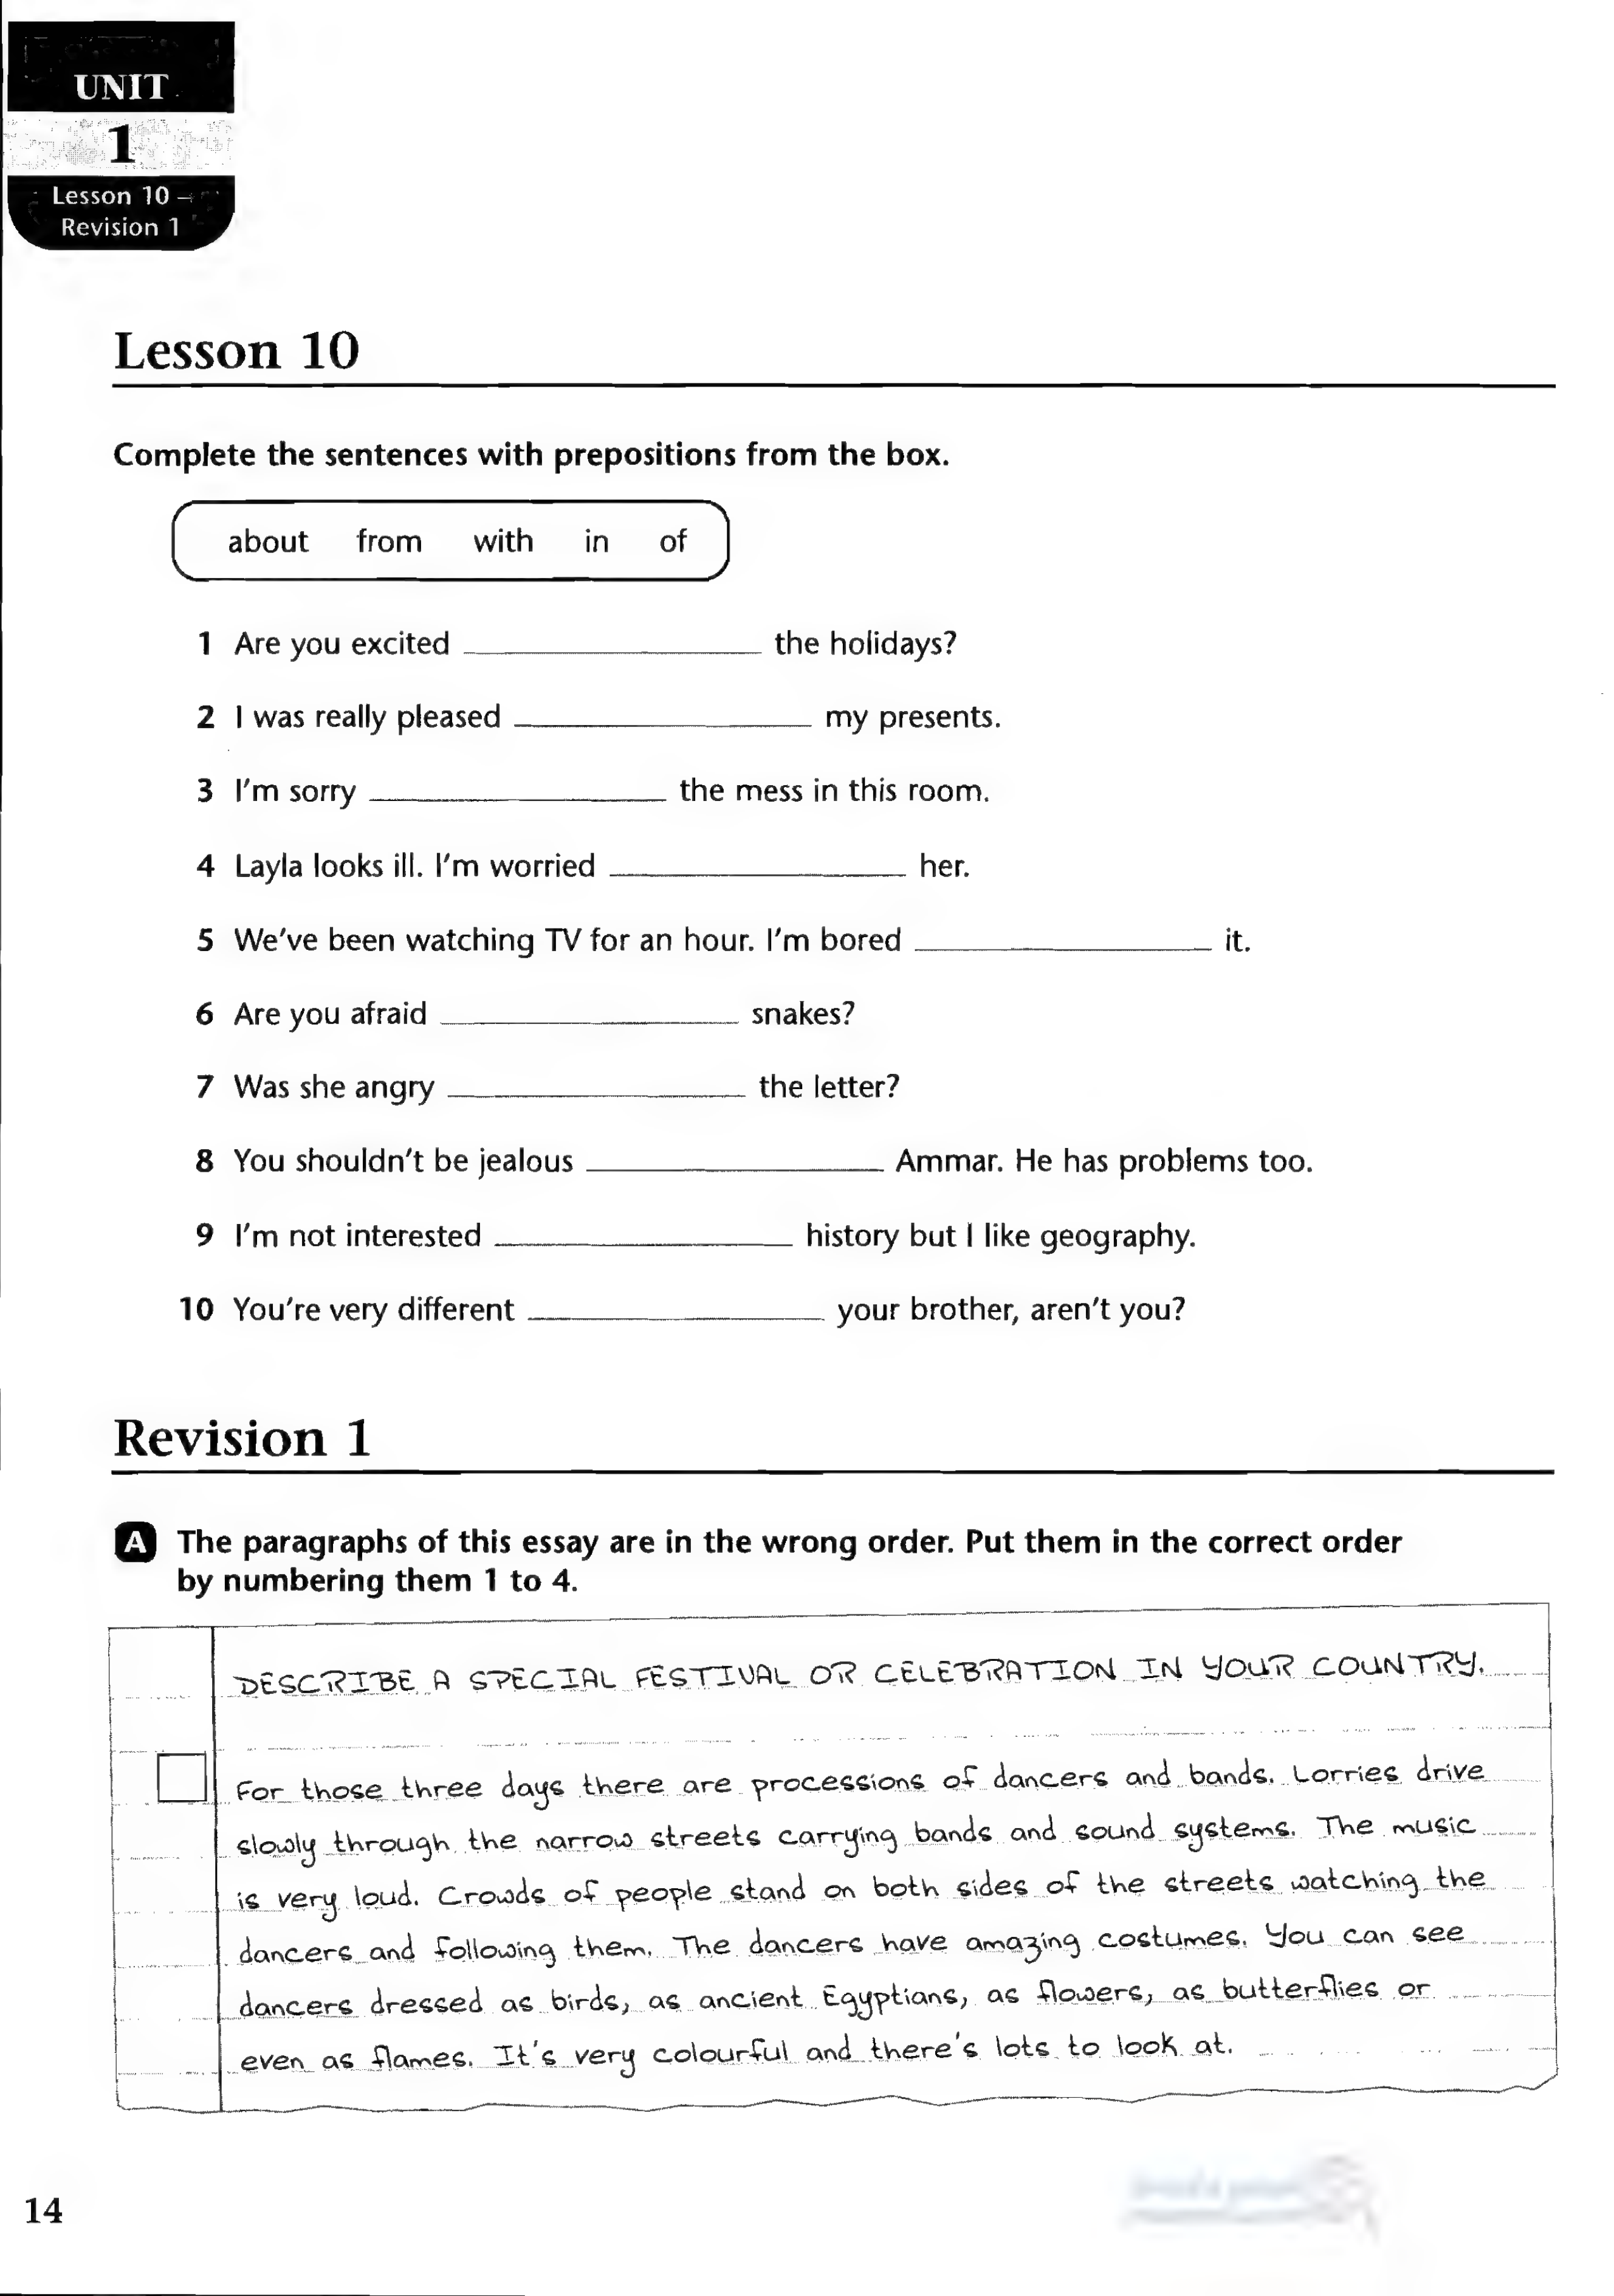 UNIT
1
Lesson 10 –
Revision 1
Lesson 10
Complete the sentences with prepositions from the box.
about from with in of
1 Are you excited ______ the holidays?
2 I was really pleased ______ my presents.
3 I'm sorry ______ the mess in this room.
4 Layla looks ill. I'm worried ______ her.
5 We've been watching TV for an hour. I'm bored ______ it.
6 Are you afraid ______ snakes?
7 Was she angry ______ the letter?
8 You shouldn't be jealous ______ Ammar. He has problems too.
9 I'm not interested ______ history but I like geography.
10 You're very different ______ your brother, aren't you?
Revision 1
A The paragraphs of this essay are in the wrong order. Put them in the correct order
by numbering them 1 to 4.
DESCRIBE A SPECIAL FESTIVAL OR CELEBRATION IN YOUR COUNTRY.
For those three days there are processions of dancers and bands. Lorries drive
slowly through the narrow streets carrying bands and sound systems. The music
is very loud. Crowds of people stand on both sides of the streets watching the
dancers and following them. The dancers have amazing costumes. You can see
dancers dressed as birds, as ancient Egyptians, as flowers, as butterflies or
even as flames. It's very colourful and there's lots to look at.
14